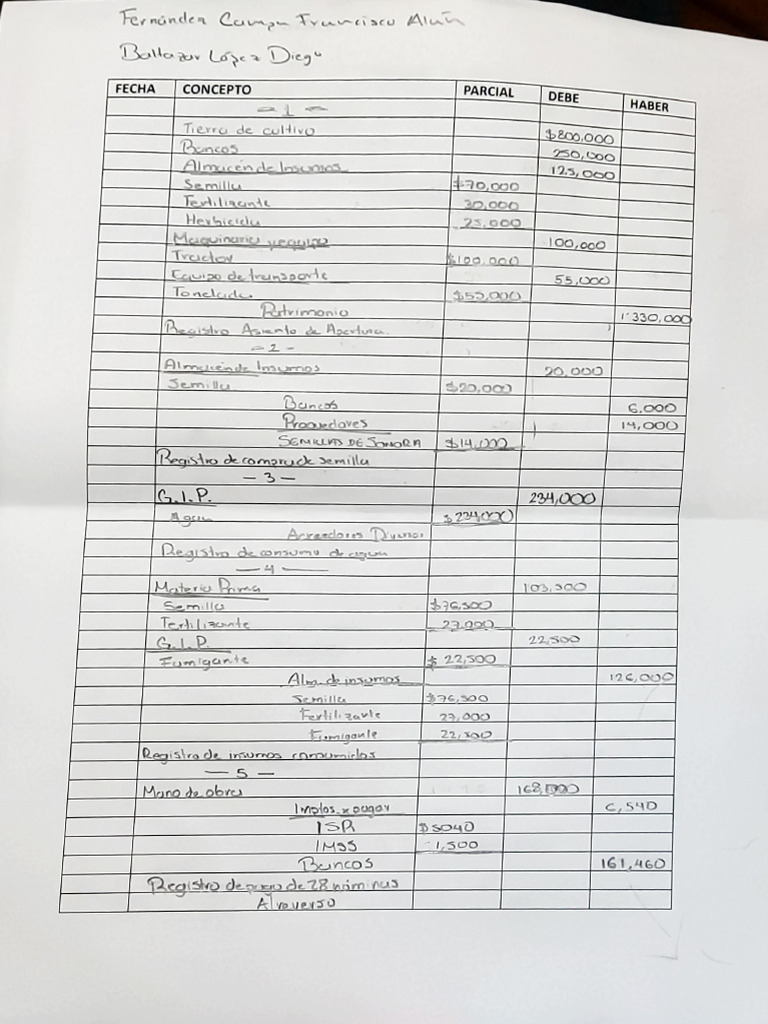 Fernández Campa Francisco Alan
Baltazar López Diego
FECHA CONCEPTO PARCIAL DEBE HABER
- 1 -
Tierra de cultivo $800,000
Bancos 250,000
Almacén de Insumos 125,000
Semilla $70,000
Fertilizante 30,000
Herbicida 25,000
Maquinaria y equipo 100,000
Tractor $100,000
Equipo de transporte 55,000
Tonelada $55,000
Patrimonio 1'330,000
Registro Asiento de Apertura.
- 2 -
Almacén de Insumos 20,000
Semilla $20,000
Bancos 6,000
Proovedores 14,000
SEMILLAS DE SONORA $14,000
Registro de compra de semilla
- 3 -
G.I.P. 234,000
Agua $234,000
Acreedores Diversos
Registro de consumo de agua
- 4 -
Materia Prima 103,500
Semilla $76,500
Fertilizante 27,000
G.I.P. 22,500
Fumigante $22,500
Alm. de insumos 126,000
Semilla $76,500
Fertilizante 27,000
Fumigante 22,500
Registro de insumos consumidos
- 5 -
Mano de obra 168,000
Imptos x pagar 6,540
ISR $5040
IMSS 1,500
Bancos 161,460
Registro de pago de 28 nóminas
Al reverso